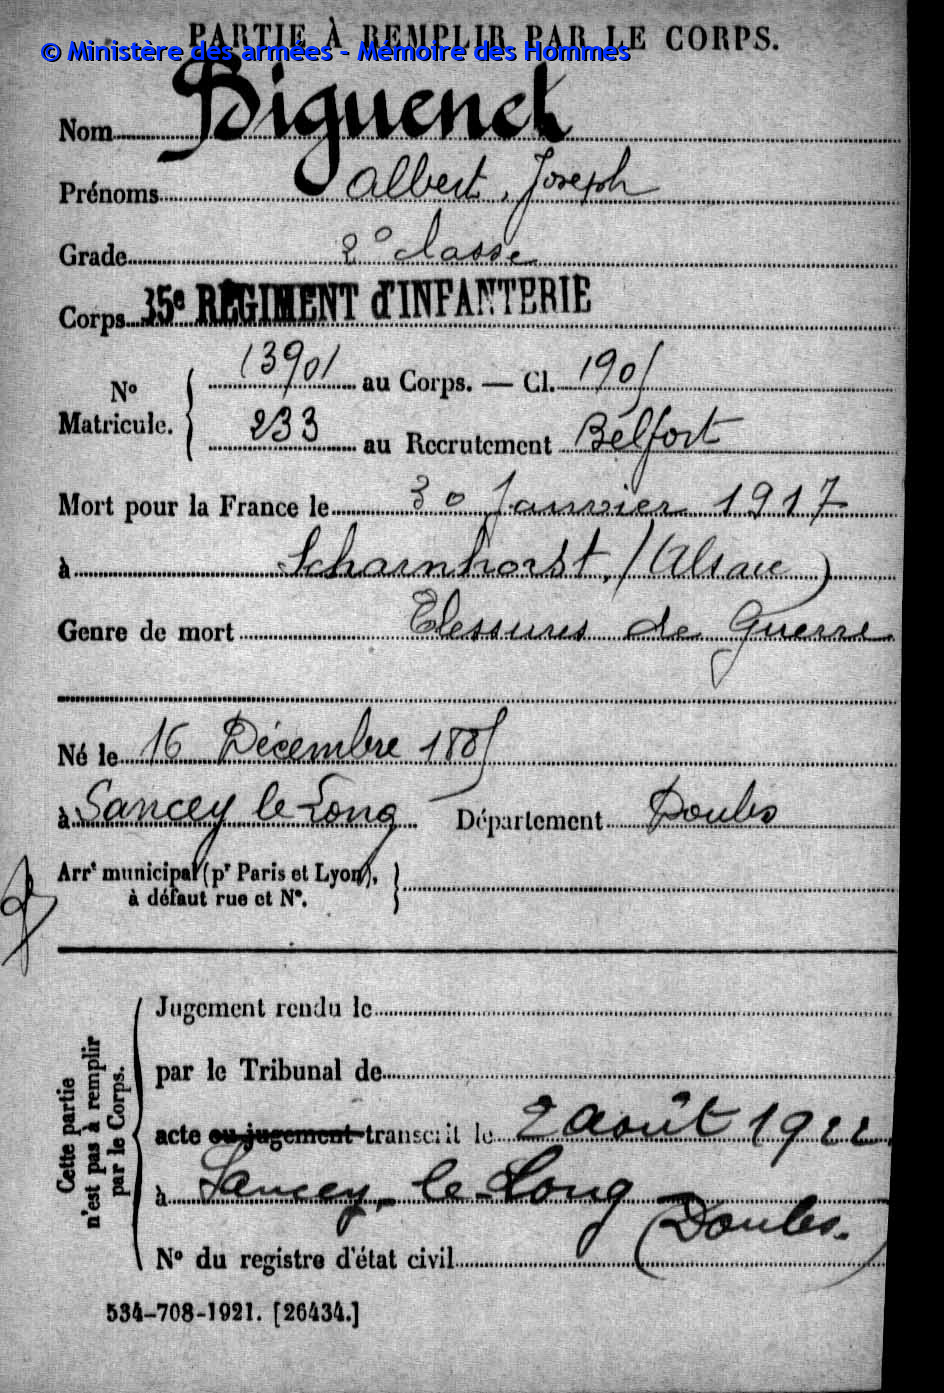 PARTIE À REMPLIR PAR LE CORPS.
© Ministère des armées - Mémoire des Hommes
Nom Biguenet
Prénoms Albert, Joseph
Grade 2e classe
Corps 35e RÉGIMENT d'INFANTERIE
No Matricule. { 13901 au Corps. — Cl. 1905
233 au Recrutement Belfort
Mort pour la France le 30 Janvier 1917
à Scharnhorst. (Alsace)
Genre de mort Blessures de Guerre
Né le 16 Décembre 1885
à Sancey le-Long Département Doubs
Arrt municipal (pr Paris et Lyon), à défaut rue et No. }
Cette partie n'est pas à remplir par le Corps.
Jugement rendu le
par le Tribunal de
acte ou jugement transcrit le 2 août 1922.
à Sancey-le-Long (Doubs.)
No du registre d'état civil
534-708-1921. [26434.]